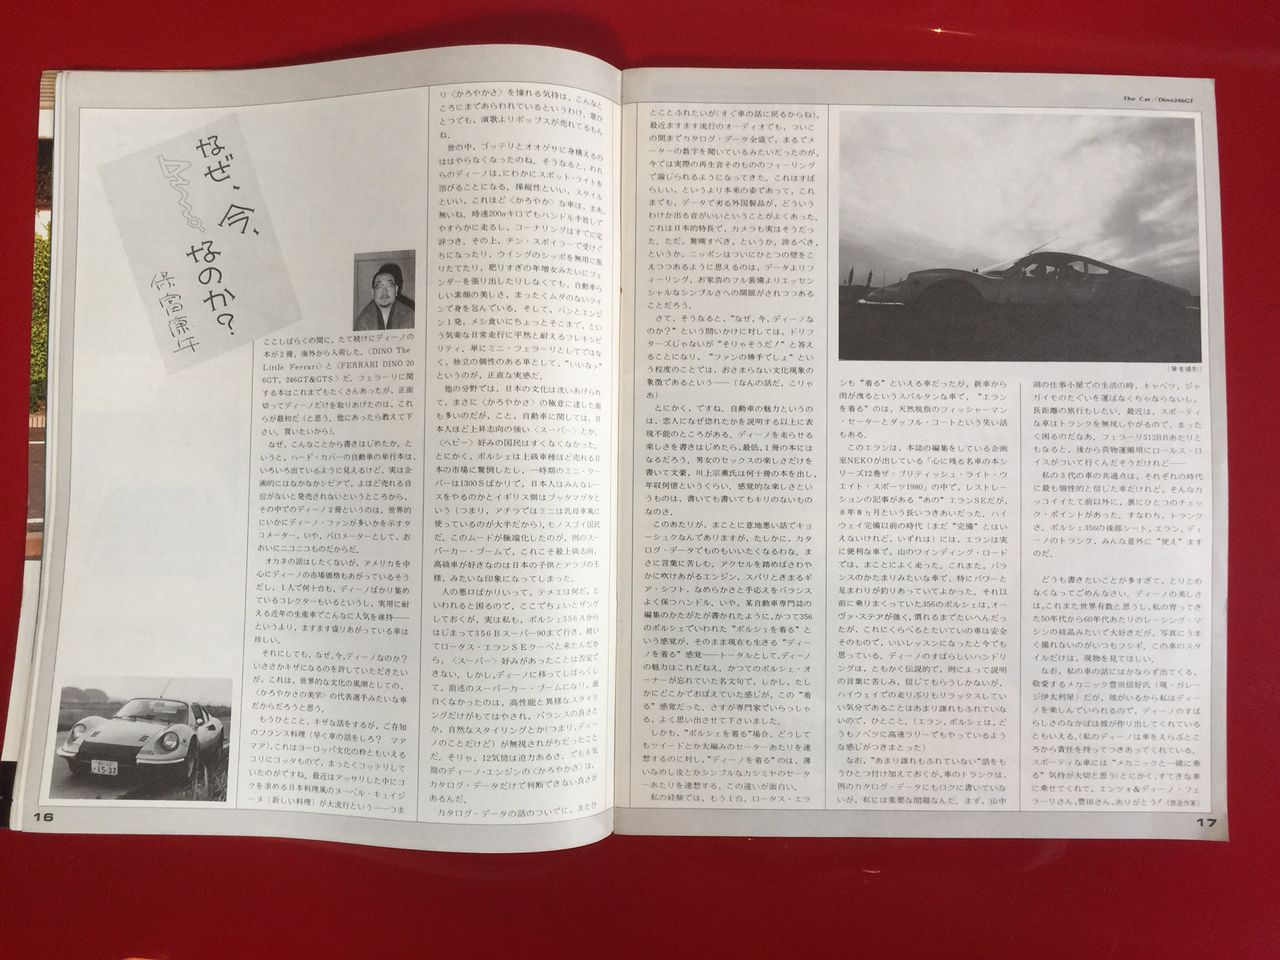 The Car／Dino246GT
なぜ、今、
Dino
なのか?
保富康午
ここしばらくの間に, たて続けにディーノの
本が2冊, 海外から入荷した.〈DINO The
Little Ferrari〉と〈FERRARI DINO 20
6GT, 246GT&GTS〉だ. フェラーリに関
する本はこれまでもたくさんあったが, 正面
切ってディーノだけを取りあげたのは, これ
らが最初だ（と思う. 他にあったら教えて下
さい. 買いたいから).
なぜ, こんなことから書きはじめたか, と
いうと, ハード・カバーの自動車の単行本は,
いろいろ出ているように見えるけど, 実は企
画的にはなかなかシビアで, よほど売れる自
信がないと発売されないというところから,
その中でのディーノ2冊というのは, 世界的
にいかにディーノ・ファンが多いかを示すタ
コメーター, いや, バロメーターとして, お
おいにニコニコものだからだ.
オカネの話はしたくないが, アメリカを中
心にディーノの市場価格もあがっているそう
だし, 1人で何十台も, ディーノばかり集め
ているコレクターもいるというし, 実用に耐
える近年の生産車でこんなに人気を維持――
というより, ますます盛りあがっている車は
珍しい.
それにしても, なぜ, 今, ディーノなのか？
いささかキザになるのを許していただきたい
が, これは, 世界的な文化の風潮としての,
〈かろやかさの美学〉の代表選手みたいな車
だからだろうと思う.
もうひとこと, キザな話をするが, ご存知
のフランス料理（早く車の話をしろ？ マア
マア), これはヨーロッパ文化の粋ともいえる
コリにコッタもので, まったくコッテリして
いたのがですね, 最近はアッサリした中にコ
クを求める日本料理風のヌーベル・キュイジ
ーヌ（新しい料理）が大流行という――つま
り〈かろやかさ〉を憧れる気持は, こんなと
ころにまであらわれているというわけ. 歌ひ
とつでも, 演歌よりポップスが売れてるもん
ね.
世の中, ゴッテリとオオゲサに身構えるの
ははやらなくなったのね. そうなると, われ
らのディーノは, にわかにスポット・ライトを
浴びることになる. 操縦性といい, スタイル
といい, これほど〈かろやか〉な車は, まあ,
無いね. 時速200㎞キロでもハンドル手放しで
やすらかに走るし, コーナリングはすでに定
評つき. その上, チン・スポイラーで受けぐ
ちになったり, ウイングのシッポを無用に振
りたてたり, 肥りすぎの年増女みたいにフェ
ンダーを張り出したりしなくても, 自動車ら
しい素顔の美しさ, まったくムダのないライ
ンで身を包んでいる. そして, バンとエンジ
ン1発, メシ食いにちょっとそこまで, とい
う気楽な日常走行に平然と耐えるフレキシビ
リティ. 単にミニ・フェラーリとしてではな
く, 独立の個性のある車として, “いいなッ”
というのが, 正直な実感だ.
他の分野では, 日本の文化は洗いあげられ
て, まさに〈かろやかさ〉の極意に達した面
も多いのだが, こと, 自動車に関しては, 日
本人ほど上昇志向の強い〈スーパー〉とか,
〈ヘビー〉好みの国民はすくなくなかった.
とにかく, ポルシェは上級車種ほど売れる日
本の市場に驚倒したし, 一時期のミニ・クー
パーは1300Sばかりで, 日本人はみんなレ
ースをやるのかとイギリス側はブッタマゲたと
いう（つまり, アチラではミニは乳母車風に
使っているのが大半だから). モノスゴイ国民
だ. このムードが極端化したのが, 例のスー
パーカー・ブームで, これこそ最上級志向,
高級車が好きなのは日本の子供とアラブの王
様, みたいな印象になってしまった.
人の悪口ばかりいって, テメエは何だ, と
いわれると困るので, ここでちょいとザンゲ
しておくが, 実は私も, ポルシェ356Aから
はじまって356Bスーパー90まで行き, 続い
てロータス・エランSEクーペと来たんだか
ら,〈スーパー〉好みがあったことは否定で
きない. しかし, ディーノに移ってしばらくし
て, 前述のスーパーカー・ブームになり, 面
白くなかったのは, 高性能と異様なスタイリ
ングだけがもてはやされ, バランスの良さと
か, 自然なスタイリングとか(つまり, ディー
ノのことだけど）が無視されがちだったこと
だ. そりゃ, 12気筒は迫力あるさ. でも6気
筒のディーノ・エンジンの〈かろやかさ〉は,
カタログ・データだけで判断できない良さが
あるんだ.
カタログ・データの話のついでに, またひ
とことふれたいが(すぐ車の話に戻るからね),
最近ますます流行のオーディオでも, ついこ
の間までカタログ・データ全盛で, まるでメ
ーターの数字を聞いているみたいだったのが,
今では実際の再生音そのもののフィーリング
で論じられるようになってきた. これはすば
らしい, というより本来の姿であって, これ
までも, データで劣る外国製品が, どういう
わけか出る音がいいということがよくあった.
これは日本的特長で, カメラも実はそうだっ
た. ただ, 驚嘆すべき, というか, 誇るべき,
というか, ニッポンはついにひとつの壁をこ
えつつあるように思えるのは, データよりフ
ィーリング, お家芸のフル装備よりエッセン
シャルなシンプルさへの開眼がされつつある
ことだろう.
さて, そうなると, “なぜ, 今, ディーノな
のか？” という問いかけに対しては, ドリフ
ターズじゃないが “そりゃそうだ！” と答え
ることになり, “ファンの勝手でしょ” とい
う程度のことでは, おさまらない文化現象の
象徴であるという――（なんの話だ, こりゃ
あ）
とにかく, ですね, 自動車の魅力というの
は, 恋人になぜ惚れたかを説明する以上に表
現不能のところがある. ディーノを走らせる
楽しさを書きはじめたら, 最低, 1冊の本には
なるだろう. 男女のセックスの楽しさだけを
書いて文豪, 川上宗薫氏は何十冊の本を出し,
年収何億というくらい, 感覚的な楽しさとい
うものは, 書いても書いてもキリのないもの
なのさ.
このあたりが, まことに意地悪い話でキョ
ーシュクなんでありますが, たしかに, カタ
ログ・データでものもいいたくなるわな. ま
さに言葉に苦しむ, アクセルを踏めばさわや
かに吹けあがるエンジン, スパリときまるギ
ア・シフト, なめらかさと手応えをバランス
よく保つハンドル. いや, 某自動車専門誌の
編集のかたがたが書かれたように, かつて356
のポルシェでいわれた “ポルシェを着る” と
いう感覚が, そのまま現在も生きる “ディー
ノを着る” 感覚――トータルとして, ディーノ
の魅力はこれだねえ. かつてのポルシェ・オ
ーナーが忘れていた名文句で, しかし, たし
かにどこかでおぼえていた感じが, この “着
る” 感覚だった. さすが専門家でいらっしゃ
る. よく思い出させて下さいました.
しかも, “ポルシェを着る”場合, どうして
もツイードとか太編みのセーターあたりを連
想するのに対し, “ディーノを着る” のは, 薄
いなめし皮とかシンプルなカシミヤのセータ
ーあたりを連想する. この違いが面白い.
私の経験では, もう1台, ロータス・エラ
（筆者撮影）
ンも “着る” といえる車だったが, 新車から
雨が洩るというスパルタンな車で, “エラン
を着る” のは, 天然脱脂のフィッシャーマン
・セーターとダッフル・コートという笑い話
もある.
このエランは, 本誌の編集をしている企画
室NEKOが出している「心に残る名車の本シ
リーズ12巻ザ・ブリティッシュ・ライト・ウ
エイト・スポーツ1980」の中で, レストレーシ
ョンの記事がある “あの” エランSEだが,
8年8ヵ月という長いつきあいだった. ハイ
ウェイ完備以前の時代（まだ “完備” とはい
えないけれど, いずれは）には, エランは実
に便利な車で, 山のワインディング・ロード
では, まことによく走った. これまた, バラ
ンスのかたまりみたいな車で, 特にパワーと
足まわりが釣りあっていてよかった. それ以
前に乗りまくっていた356のポルシェは, オー
ヴァ・ステアが強く, 慣れるまでたいへんだっ
たが, これにくらべるとたいていの車は安全
そのもので, いいレッスンになったと今でも
思っている. ディーノのすばらしいハンドリ
ングは, ともかく伝説的で, 例によって説明
の言葉に苦しみ, 信じてもらうしかないが,
ハイウェイでの走りぶりもリラックスしてい
い気分であることはあまり誰れもふれていな
いので, ひとこと. (エラン, ポルシェは, ど
うもノベツに高速ラリーでもやっているよう
な感じがつきまとった）
なお, “あまり誰れもふれていない” 話をも
うひとつ付け加えておくが, 車のトランクは,
例のカタログ・データにもロクに書いていな
いが, 私には重要な問題なんだ. まず, 山中
湖の仕事小屋での生活の時, キャベツ, ジャ
ガイモのたぐいを運ばなくちゃならないし,
長距離の旅行もしたい. 最近は, スポーティ
な車はトランクを無視しやがるので, まった
く困るのだなあ. フェラーリ512BBあたりと
もなると, 後から荷物運搬用にロールス・ロ
イスがついて行くんだそうだけれど――
私の3代の車の共通点は, それぞれの時代
に最も個性的と信じた車だけれど, そんなカ
ッコイイたて前以外に, 裏にひとつのチェッ
ク・ポイントがあった. すなわち, トランク
さ. ポルシェ356の後部シート, エラン, ディ
ーノのトランク, みんな意外に “使え” ます
のだ.
どうも書きたいことが多すぎて, とりとめ
なくなってごめんなさい. ディーノの美しさ
は, これまた世界有数と思うし, 私の育ってき
た50年代から60年代あたりのレーシング・マ
シンの結晶みたいで大好きだが, 写真にうま
く撮れないのがいつもフシギ. この車のスタ
イルだけは, 現物を見てほしい.
なお, 私の車の話にはかならず出てくる,
敬愛するメカニック豊田信好氏（現・ガレー
ジ伊太利屋）だが, 彼がいるから私はディー
ノを楽しんでいられるので, ディーノのすば
らしさのなかばは彼が作り出してくれている
ともいえる.（私のディーノは車をえらぶとこ
ろから責任を持ってつきあってくれている.
スポーティな車には “メカニックと一緒に乗
る” 気持が大切と思う)とにかく, すてきな車
に乗せてくれて, エンツォ&ディーノ・フェ
ラーリさん, 豊田さん, ありがとう！（放送作家）
15-37
16
17